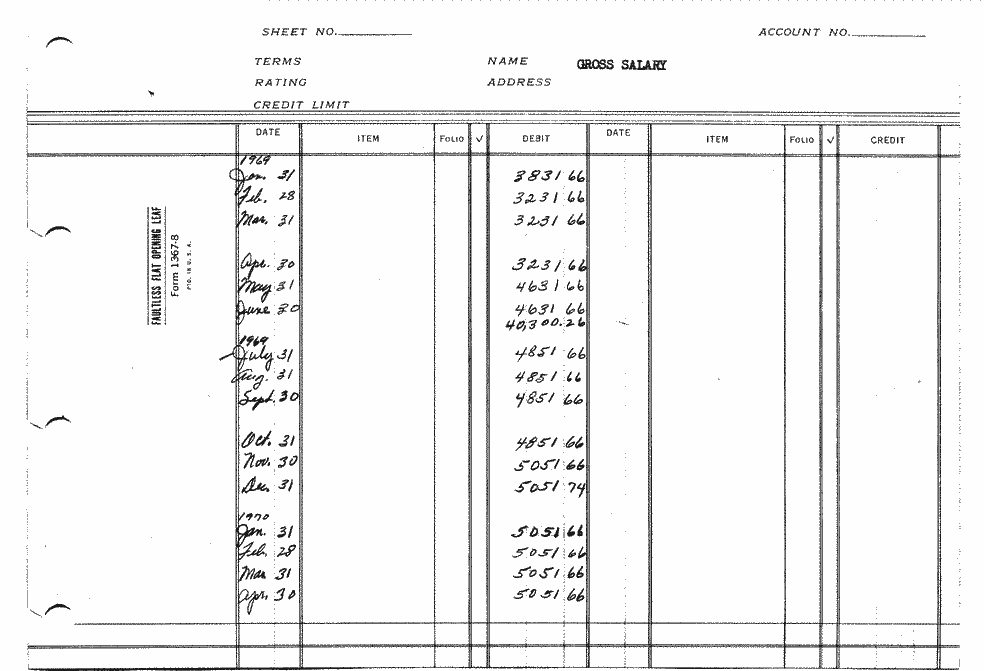 SHEET NO.
ACCOUNT NO.
TERMS
NAME GROSS SALARY
RATING
ADDRESS
CREDIT LIMIT
DATE ITEM FOLIO ✓ DEBIT DATE ITEM FOLIO ✓ CREDIT
1969
Jan. 31 3831 66
Feb. 28 3231 66
Mar. 31 3231 66
Apr. 30 3231 66
May 31 4631 66
June 30 4631 66
40,300.26
1969
July 31 4851 66
Aug. 31 4851 66
Sept. 30 4851 66
Oct. 31 4851 66
Nov. 30 5051 66
Dec. 31 5051 74
1970
Jan. 31 5051 66
Feb. 28 5051 66
Mar 31 5051 66
Apr. 30 5051 66
FAULTLESS FLAT OPENING LEAF
Form 1367-8
PTD. IN U. S. A.